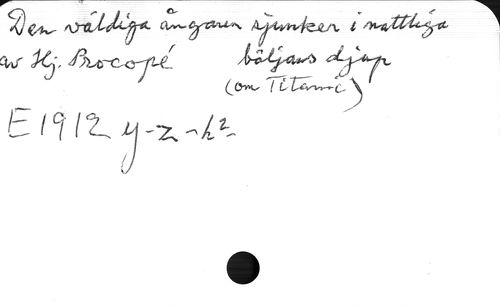 Den väldiga ångaren sjunker i nattliga
av Hj. Procopé böljans djup
(om Titanic)
E 1912 y-z-h²-